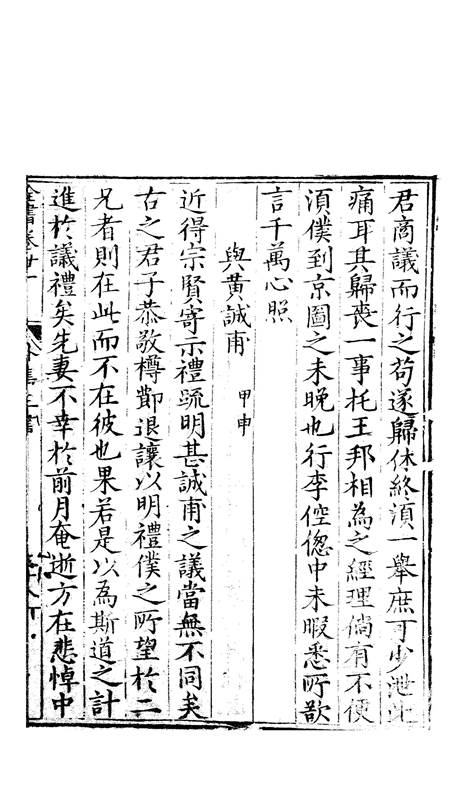 君商議而行之苟遂歸休終須一舉庶可少泄此
痛耳其歸喪一事托王邦相為之經理倘有不便
須僕到京圖之未晚也行李倥偬中未暇悉所欲
言千萬心照
與黃誠甫 甲申
近得宗賢寄示禮疏明甚誠甫之議當無不同矣
古之君子恭敬樽節退讓以明禮僕之所望於二
兄者則在此而不在彼也果若是以為斯道之計
進於議禮矣先妻不幸於前月奄逝方在悲悼中
全書卷廿一